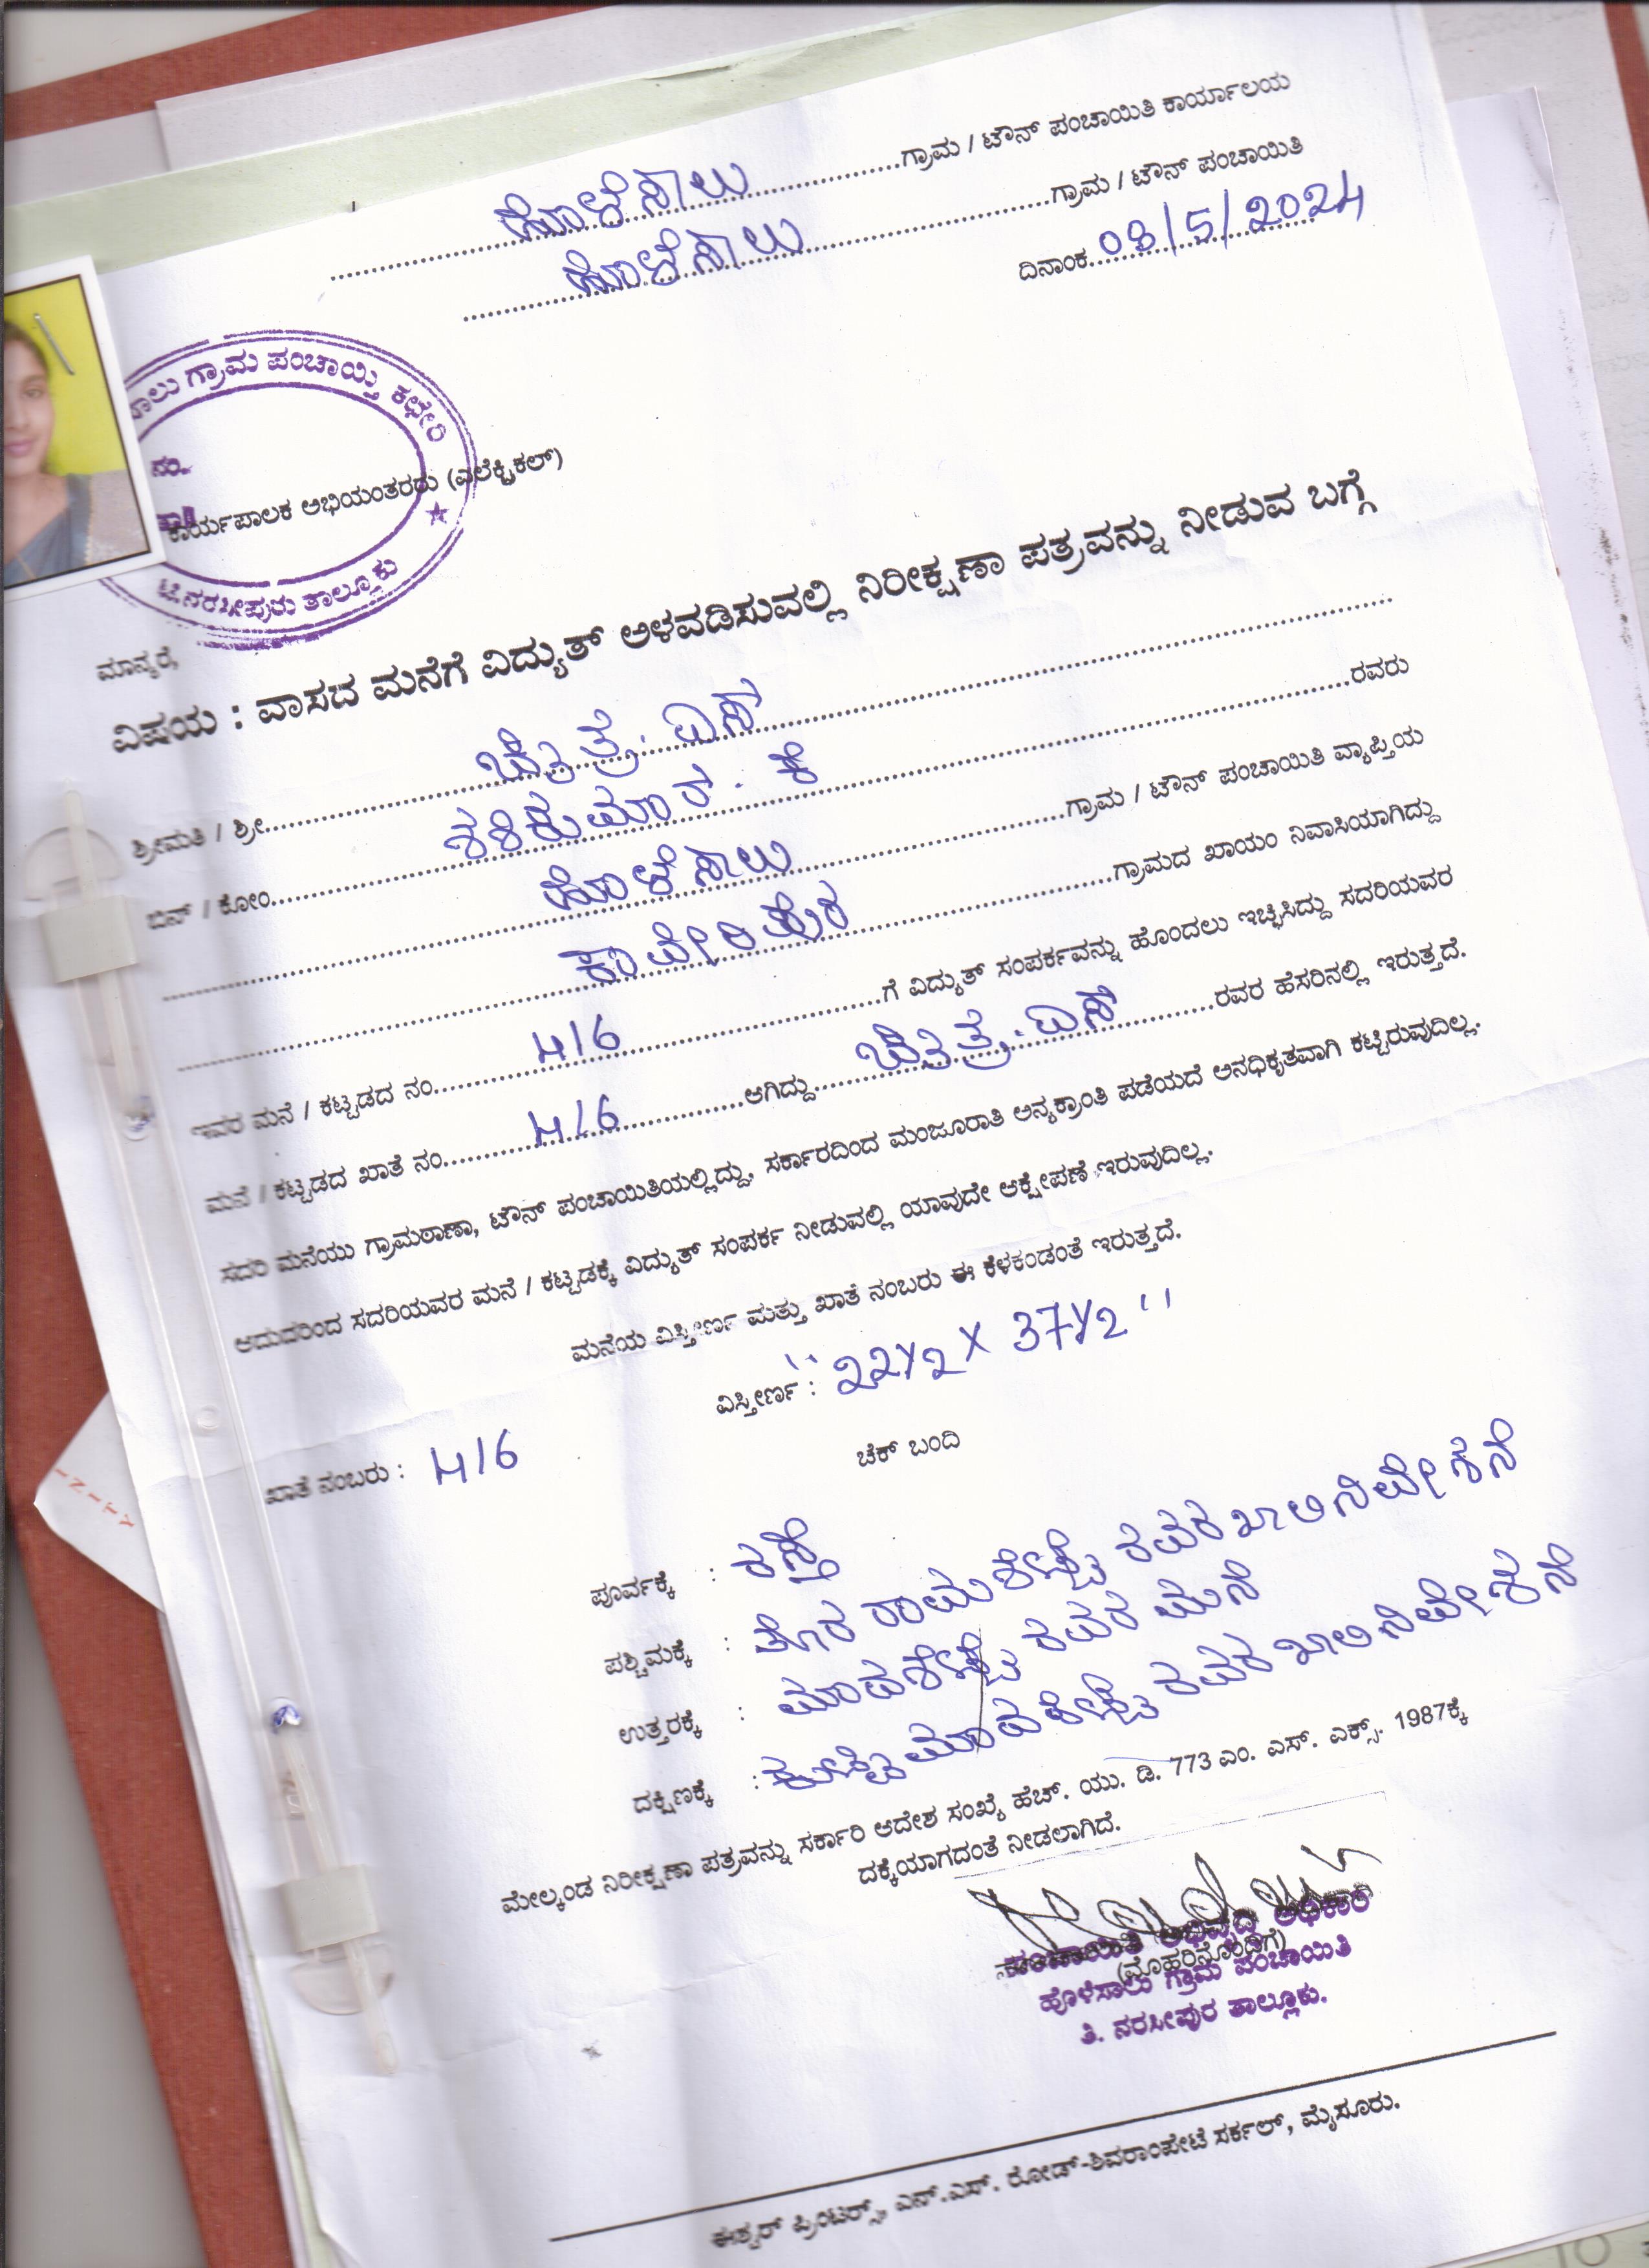 ಹೊಳೆಸಾಲು ಗ್ರಾಮ / ಟೌನ್ ಪಂಚಾಯಿತಿ ಕಾರ್ಯಾಲಯ
ಹೊಳೆಸಾಲು ಗ್ರಾಮ / ಟೌನ್ ಪಂಚಾಯಿತಿ
ದಿನಾಂಕ 08/5/2024
ಸಾಲು ಗ್ರಾಮ ಪಂಚಾಯ್ತಿ ಕಛೇರಿ
ನಂ.
ಕಾರ್ಯಪಾಲಕ ಅಭಿಯಂತರರು (ಎಲೆಕ್ಟ್ರಿಕಲ್)
ಟಿ.ನರಸೀಪುರು ತಾಲ್ಲೂಕು
ಮಾನ್ಯರೆ,
ವಿಷಯ : ವಾಸದ ಮನೆಗೆ ವಿದ್ಯುತ್ ಅಳವಡಿಸುವಲ್ಲಿ ನಿರೀಕ್ಷಣಾ ಪತ್ರವನ್ನು ನೀಡುವ ಬಗ್ಗೆ
ಶ್ರೀಮತಿ / ಶ್ರೀ ಚೈತ್ರೆ. ಎಸ್
ಬಿನ್ / ಕೋಂ ಶಶಿಕುಮಾರ್. ಕೆ ರವರು
ಹೊಳೆಸಾಲು ಗ್ರಾಮ / ಟೌನ್ ಪಂಚಾಯಿತಿ ವ್ಯಾಪ್ತಿಯ
ಕಾವೇರಿಪುರ ಗ್ರಾಮದ ಖಾಯಂ ನಿವಾಸಿಯಾಗಿದ್ದು
ಇವರ ಮನೆ / ಕಟ್ಟಡದ ನಂ. 416 ಗೆ ವಿದ್ಯುತ್ ಸಂಪರ್ಕವನ್ನು ಹೊಂದಲು ಇಚ್ಛಿಸಿದ್ದು ಸದರಿಯವರ
ಮನೆ / ಕಟ್ಟಡದ ಖಾತೆ ನಂ. 416 ಆಗಿದ್ದು ಚೈತ್ರೆ. ಎಸ್ ರವರ ಹೆಸರಿನಲ್ಲಿ ಇರುತ್ತದೆ.
ಸದರಿ ಮನೆಯು ಗ್ರಾಮಠಾಣಾ, ಟೌನ್ ಪಂಚಾಯಿತಿಯಲ್ಲಿದ್ದು, ಸರ್ಕಾರದಿಂದ ಮಂಜೂರಾತಿ ಅನ್ಯಕ್ರಾಂತಿ ಪಡೆಯದೆ ಅನಧಿಕೃತವಾಗಿ ಕಟ್ಟಿರುವುದಿಲ್ಲ.
ಆದುದರಿಂದ ಸದರಿಯವರ ಮನೆ / ಕಟ್ಟಡಕ್ಕೆ ವಿದ್ಯುತ್ ಸಂಪರ್ಕ ನೀಡುವಲ್ಲಿ ಯಾವುದೇ ಆಕ್ಷೇಪಣೆ ಇರುವುದಿಲ್ಲ.
ಮನೆಯ ವಿಸ್ತೀರ್ಣ ಮತ್ತು ಖಾತೆ ನಂಬರು ಈ ಕೆಳಕಂಡಂತೆ ಇರುತ್ತದೆ.
ವಿಸ್ತೀರ್ಣ : "22Y2 X 37Y2"
ಖಾತೆ ನಂಬರು : 416
ಚೆಕ್ ಬಂದಿ
ಪೂರ್ವಕ್ಕೆ : ರಸ್ತೆ
ಪಶ್ಚಿಮಕ್ಕೆ : ರಾಮಶೆಟ್ಟಿ ರವರ ಖಾಲಿ ನಿವೇಶನ
ಉತ್ತರಕ್ಕೆ : ಮಾದಶೆಟ್ಟಿ ರವರ ಮನೆ
ದಕ್ಷಿಣಕ್ಕೆ : ಮಾದಶೆಟ್ಟಿ ರವರ ಖಾಲಿ ನಿವೇಶನ
ಮೇಲ್ಕಂಡ ನಿರೀಕ್ಷಣಾ ಪತ್ರವನ್ನು ಸರ್ಕಾರಿ ಆದೇಶ ಸಂಖ್ಯೆ ಹೆಚ್. ಯು. ಡಿ. 773 ಎಂ. ಎಸ್. ಎಕ್ಸ್. 1987ಕ್ಕೆ
ದಕ್ಕೆಯಾಗದಂತೆ ನೀಡಲಾಗಿದೆ.
ಪಂಚಾಯಿತಿ ಅಭಿವೃದ್ಧಿ ಅಧಿಕಾರಿ
(ಮೊಹರಿನೊಂದಿಗೆ)
ಹೊಳೆಸಾಲು ಗ್ರಾಮ ಪಂಚಾಯಿತಿ
ತಿ. ನರಸೀಪುರ ತಾಲ್ಲೂಕು.
ಈಶ್ವರ್ ಪ್ರಿಂಟರ್ಸ್, ಎನ್.ಎಸ್. ರೋಡ್-ಶಿವರಾಂಪೇಟೆ ಸರ್ಕಲ್, ಮೈಸೂರು.